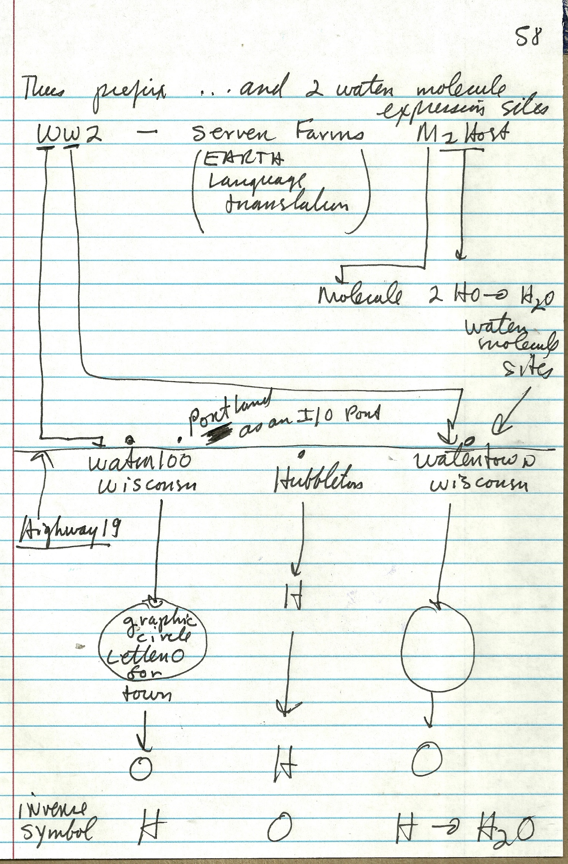 58
Thus prefix ... and 2 water molecule
expression sites
WW2 — Server Farms M2Host
(EARTH
Language
translation)
Molecule 2 HO → H2O
water
molecule
sites
Portland
as an I/O Port
water100 Hubbleton watertown
wisconsin wisconsin
Highway 19
H
graphic
circle
Letter O
for
town
O H O
inverse
symbol H O H → H2O